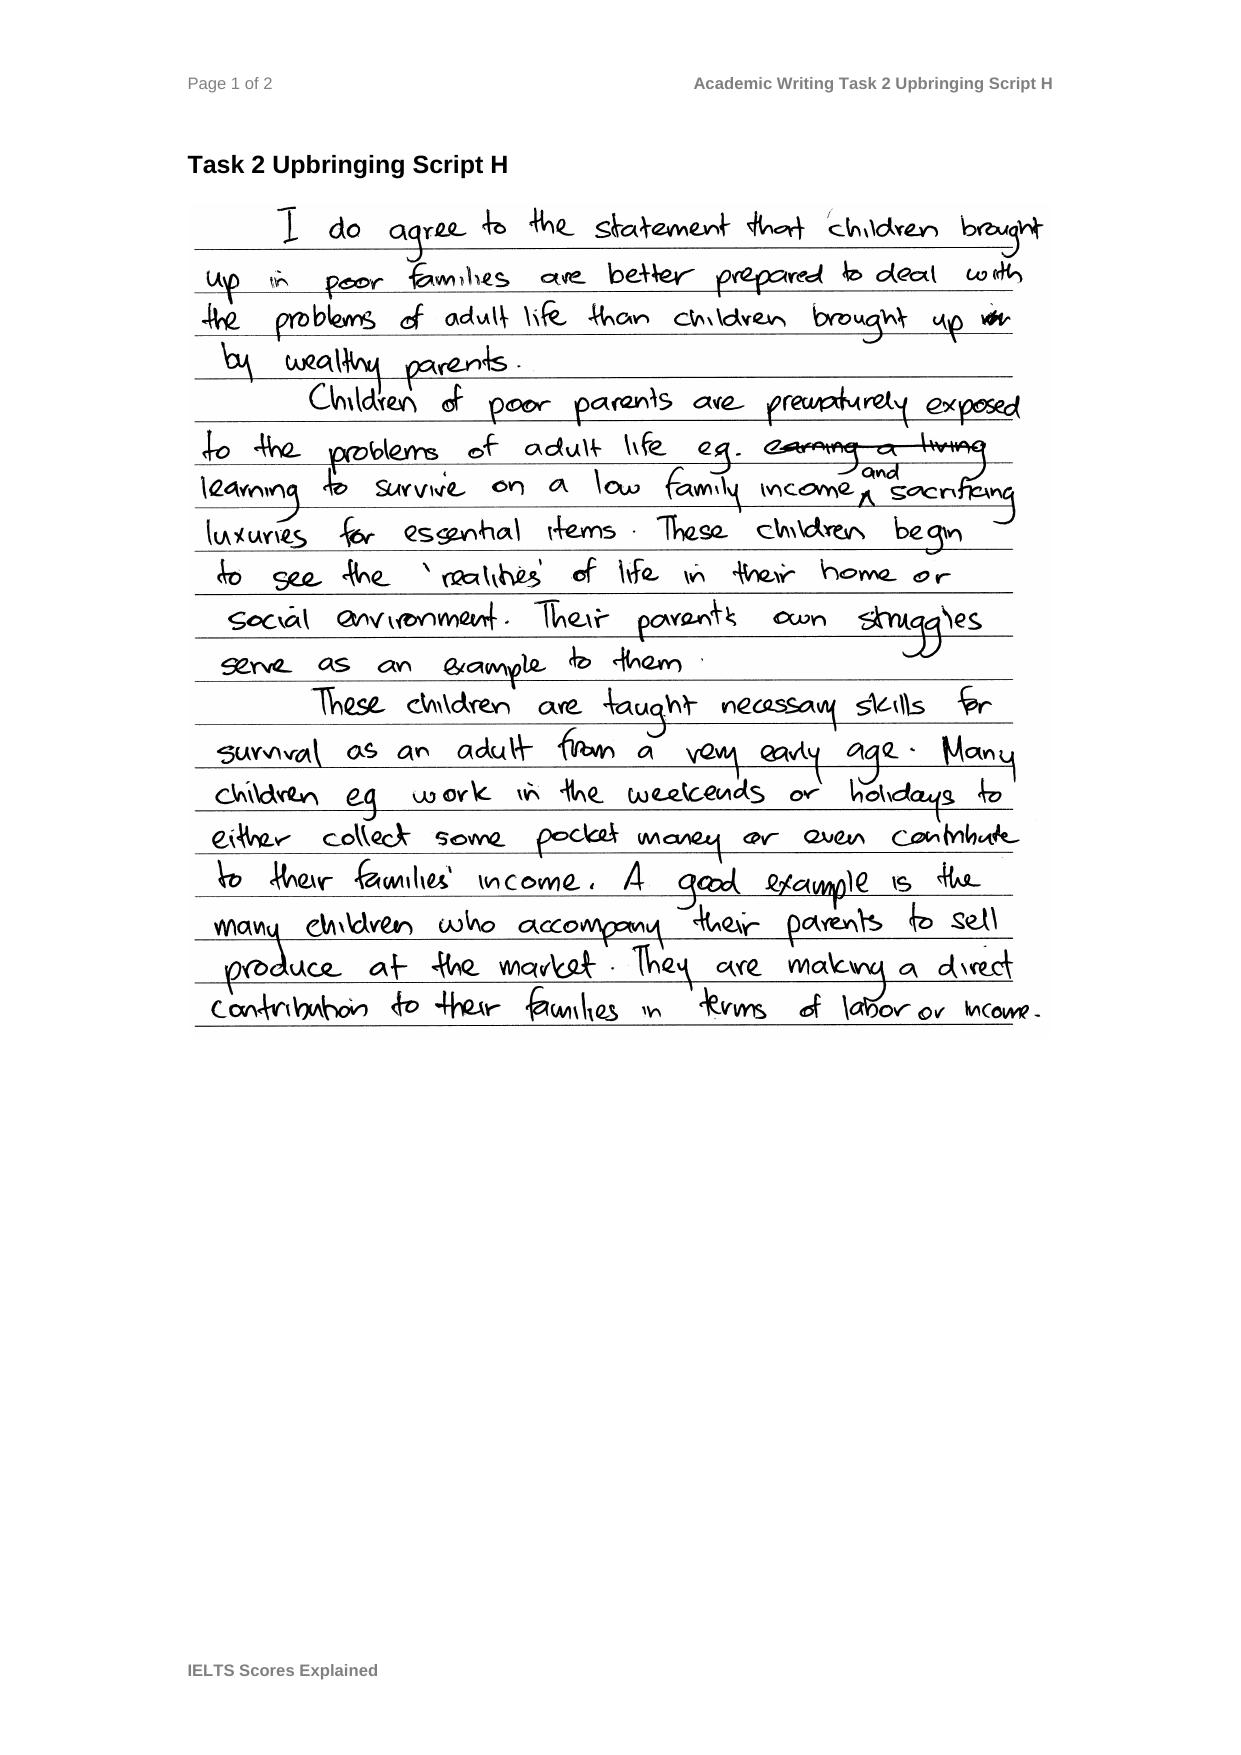 Page 1 of 2
Academic Writing Task 2 Upbringing Script H
Task 2 Upbringing Script H
I do agree to the statement that children brought
up in poor families are better prepared to deal with
the problems of adult life than children brought up in
by wealthy parents.
Children of poor parents are prematurely exposed
to the problems of adult life eg. earning a living
learning to survive on a low family income and sacrificing
luxuries for essential items. These children begin
to see the 'realities' of life in their home or
social environment. Their parents own struggles
serve as an example to them.
These children are taught necessary skills for
survival as an adult from a very early age. Many
children eg work in the weekends or holidays to
either collect some pocket money or even contribute
to their families' income. A good example is the
many children who accompany their parents to sell
produce at the market. They are making a direct
contribution to their families in terms of labor or income.
IELTS Scores Explained